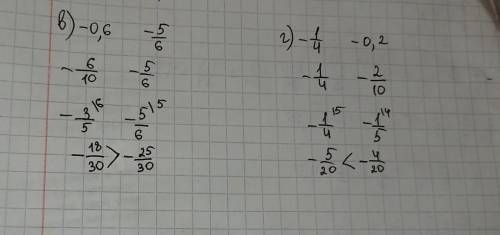 в) -0,6   -5/6
-6/10   -5/6
-3/5\6   -5/6\5
-18/30 > -25/30
г) -1/4   -0,2
-1/4   -2/10
-1/4\5   -1/5\4
-5/20 < -4/20